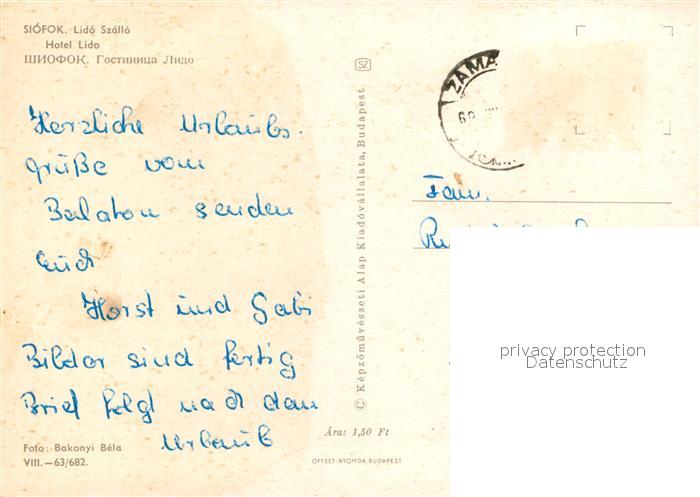 SIÓFOK. Lidó Szálló
Hotel Lido
ШИОФОК. Гостиница Лидо
Herzliche Urlaubs-
grüße vom
Balaton senden
Euch
Horst und Gabi
Bilder sind fertig
Brief folgt nach dem
Urlaub
Foto: Bakonyi Béla
VIII.—63/682.
SZ
© Képzőművészeti Alap Kiadóvállalata, Budapest
Ára: 1,50 Ft
OFFSET-NYOMDA, BUDAPEST
ZAMÁ
Fam.
privacy protection
Datenschutz